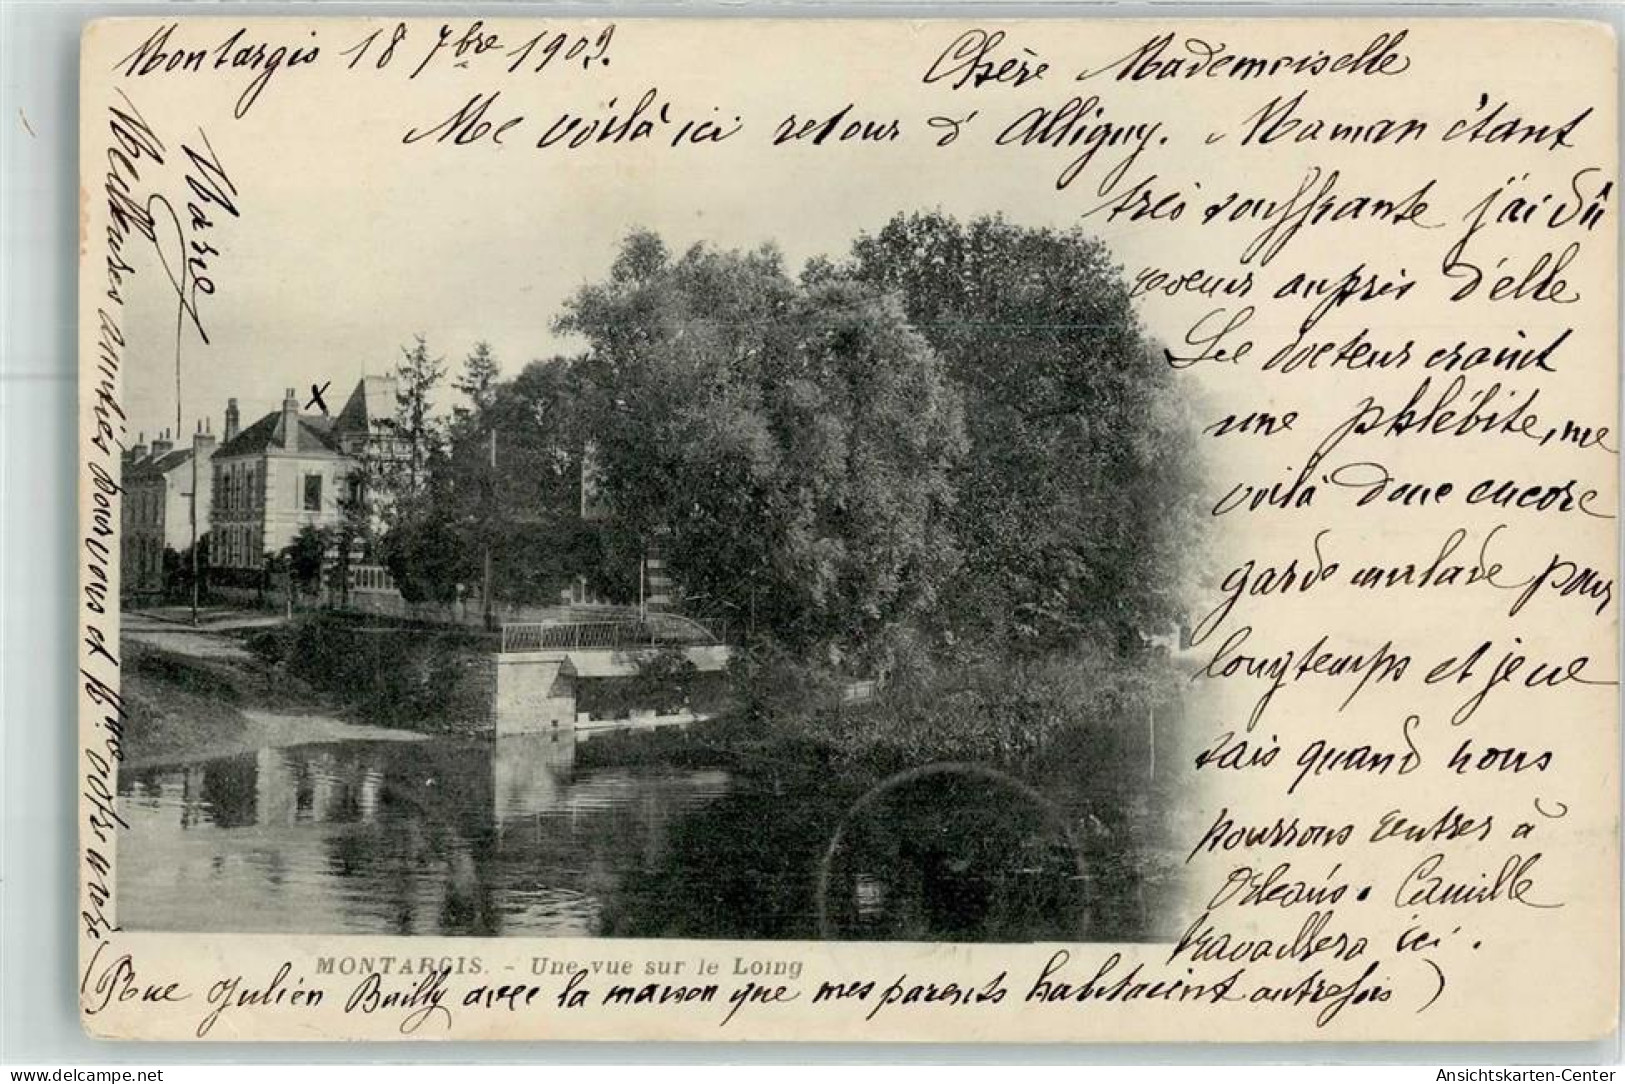 Montargis 18 7bre 1903.
Chère Mademoiselle
Me voilà ici retour d'Alligny. Maman étant
très souffrante j'ai dû
revenir auprès d'elle
Le docteur craint
une phlébite, me
voilà donc encore
garde malade pour
longtemps et je ne
sais quand nous
pourrons rentrer à
Orléans. Camille
travaillera ici.
Meilleures amitiés pour vous et
Marie
x
MONTARGIS. - Une vue sur le Loing
(Rue Julien Bailly avec la maison que mes parents habitaient autrefois)
Ansichtskarten-Center
www.delcampe.net